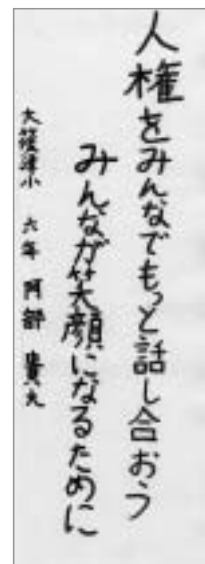 人権をみんなでもっと話し合おう
みんなが笑顔になるために
大篠津小 六年 阿部 貴大